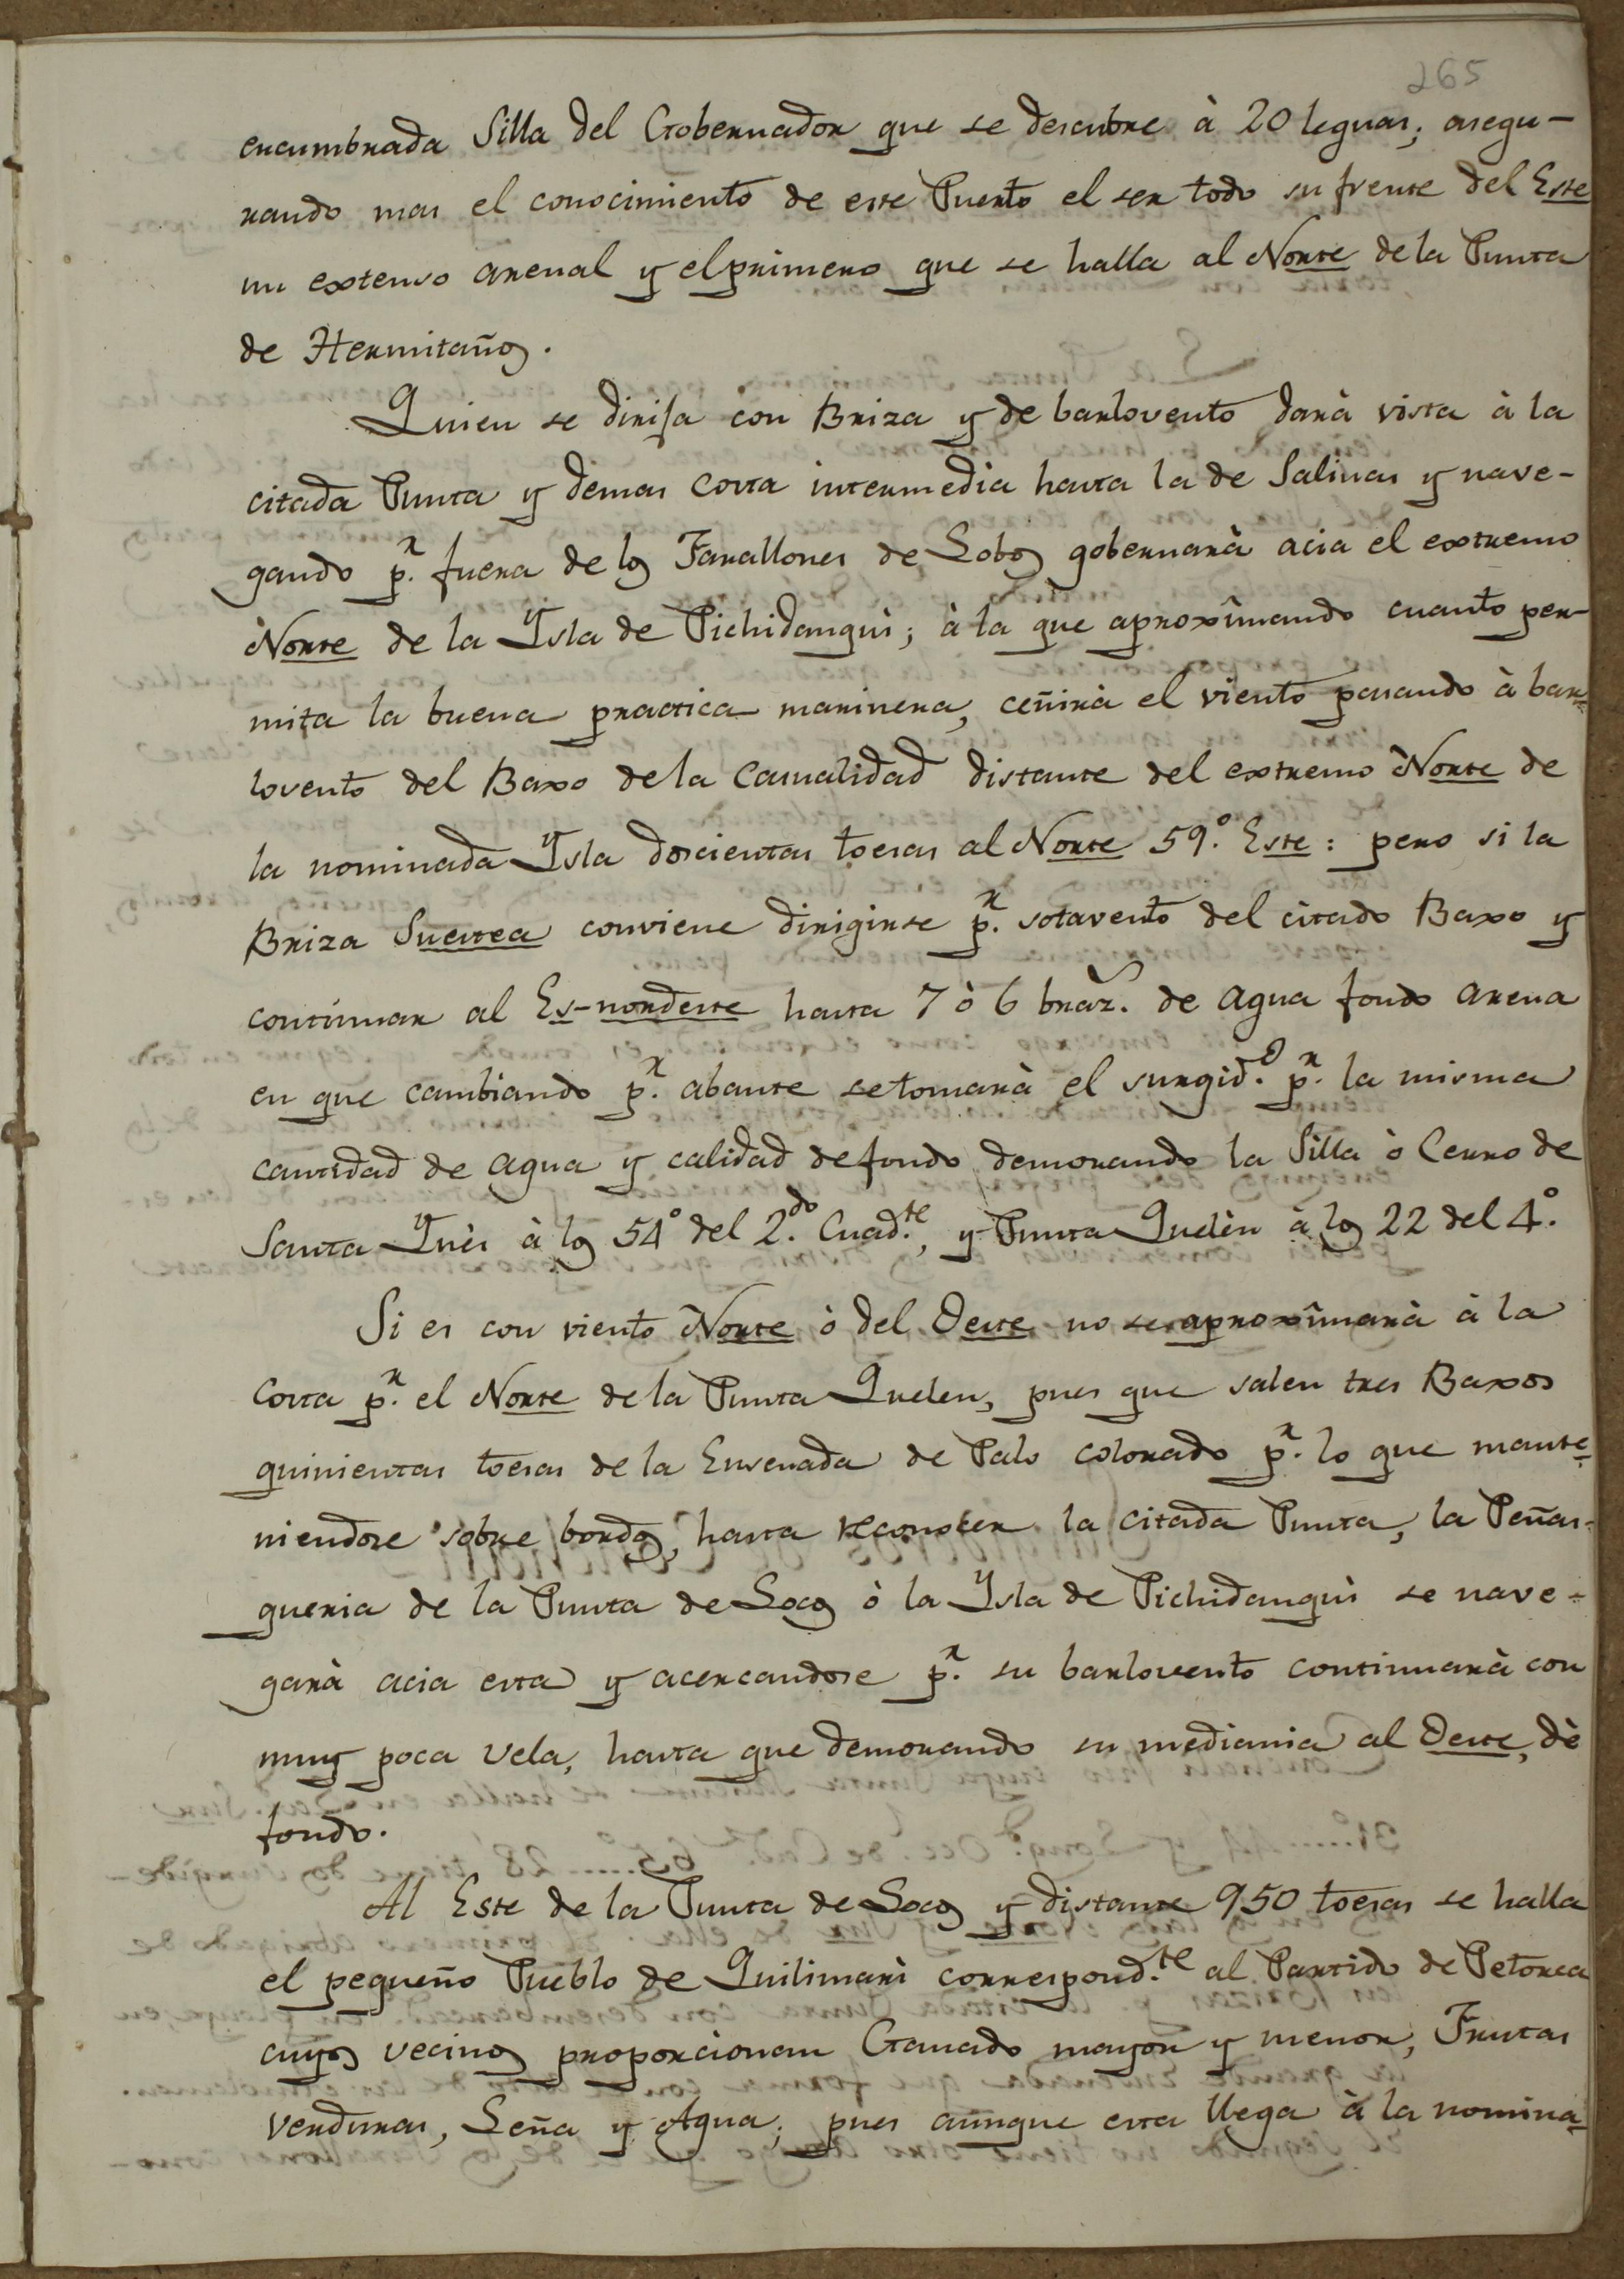 265
encumbrada Silla del Gobernador que se descubre à 20 leguas; asegu-
rando mas el conocimiento de este Puerto el ser todo su frente del Este
un extenso arenal y el primero que se halla al Norte de la Punta
de Hermitaños.
Quien se dirija con Briza y de barlovento darà vista à la
citada Punta y demas costa intermedia hasta la de Salinas y nave-
gando p.r fuera de los Farallones de Lobos gobernarà acia el extremo
Norte de la Ysla de Pichidanguì; à la que aproxîmando cuanto per-
mita la buena practica marinera, ceñirà el viento pasando à bar-
lovento del Baxo de la Casualidad distante del extremo Norte de
la nominada Ysla doscientas toesas al Norte 59.° Este: pero si la
Briza Suestea conviene dirigirse p.r sotavento del citado Baxo y
continuar al Es-nordeste hasta 7 ò 6 braz.s de agua fondo arena
en que cambiando p.r abante se tomarà el surgid.o p.r la misma
cantidad de agua y calidad de fondo demorando la Silla ò Cerro de
Santa Ynès à los 54° del 2.do Cuad.te, y Punta Quelèn à los 22 del 4.°
Si es con viento Norte ò del Oeste no se aproxîmarà à la
Costa p.r el Norte de la Punta Quelen, pues que salen tres Baxos
quinientas toesas de la Ensenada de Palo colorado p.r lo que mante-
niendose sobre bordos, hasta reconocer la citada Punta, la Peñas-
queria de la Punta de Locos ò la Ysla de Pichidanguì se nave-
garà acia esta y acercandose p.r su barlovento continuarà con
muy poca vela, hasta que demorando su mediania al Oeste, dè
fondo.
Al Este de la Punta de Locos y distante 950 toesas se halla
el pequeño Pueblo de Quilimarì correspond.te al Partido de Petorca
cuyos vecinos proporcionan Ganado mayor y menor, Frutas
Verduras, Leña y Agua; pues aunque esta llega à la nomina-